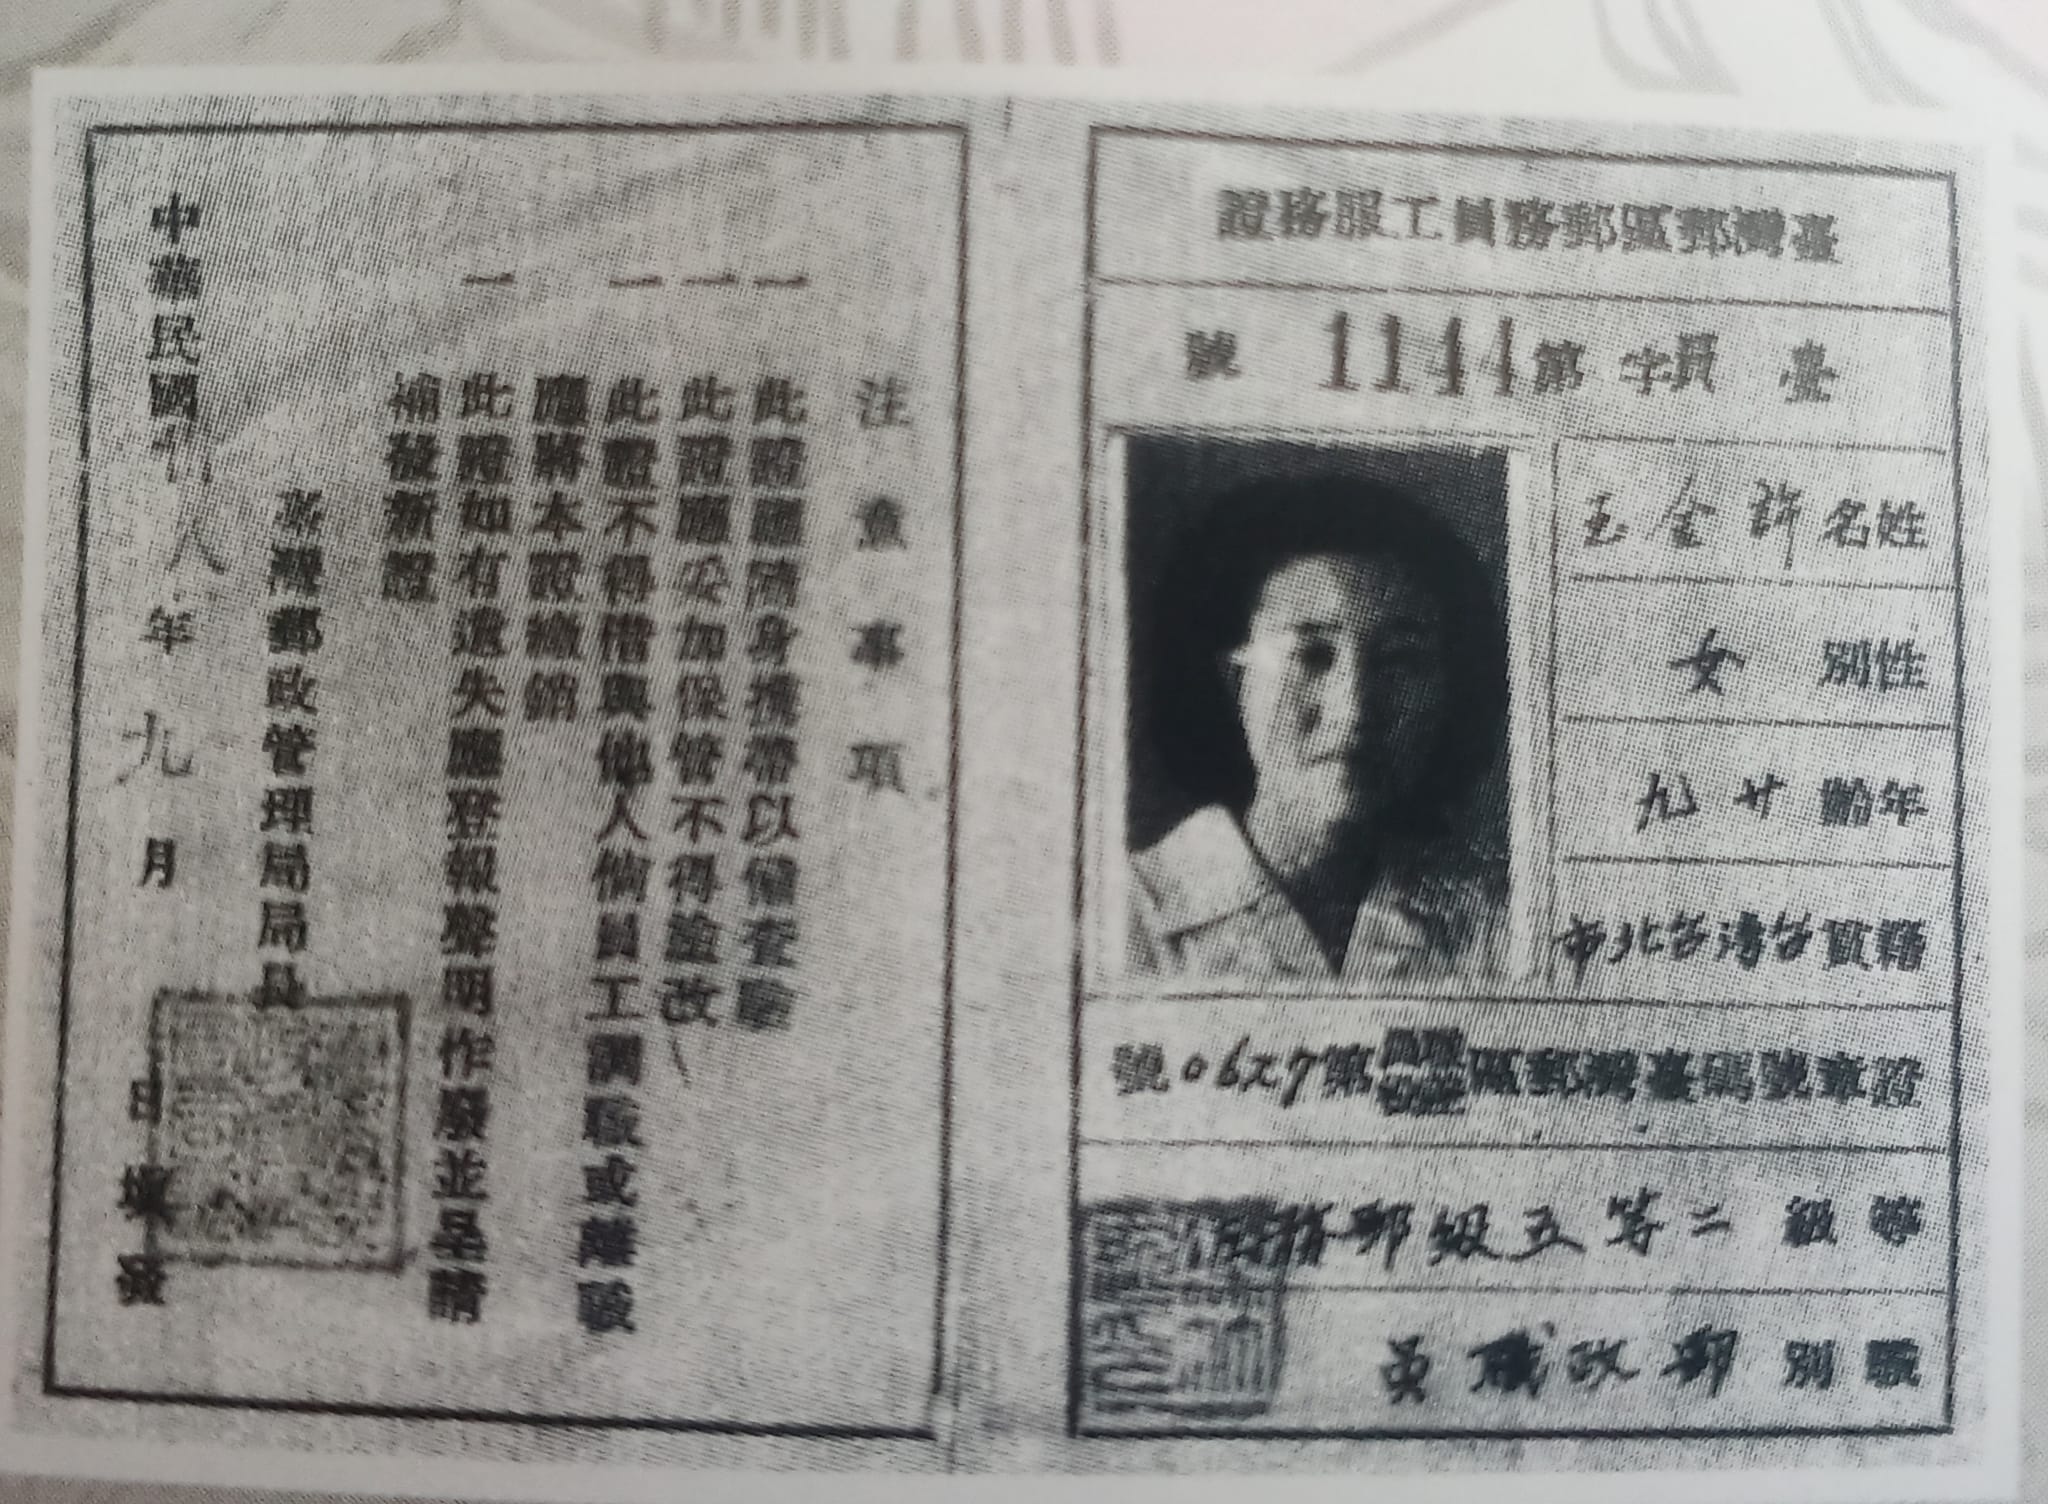 臺灣郵區郵務員工服務證
臺員字第1144號
姓名許金玉
性別女
年齡廿九
籍貫台湾台北市
證章號碼臺灣郵區第0627號
等級二等五級郵務
職別郵政職員
注意事項
一 此證應隨身攜帶以備查驗
一 此證應妥加保管不得塗改
一 此證不得借與他人倘員工調職或離職
應將本證繳銷
一 此證如有遺失應登報聲明作廢並呈請
補發新證
臺灣郵政管理局局長
中華民國 八年九月 日填發